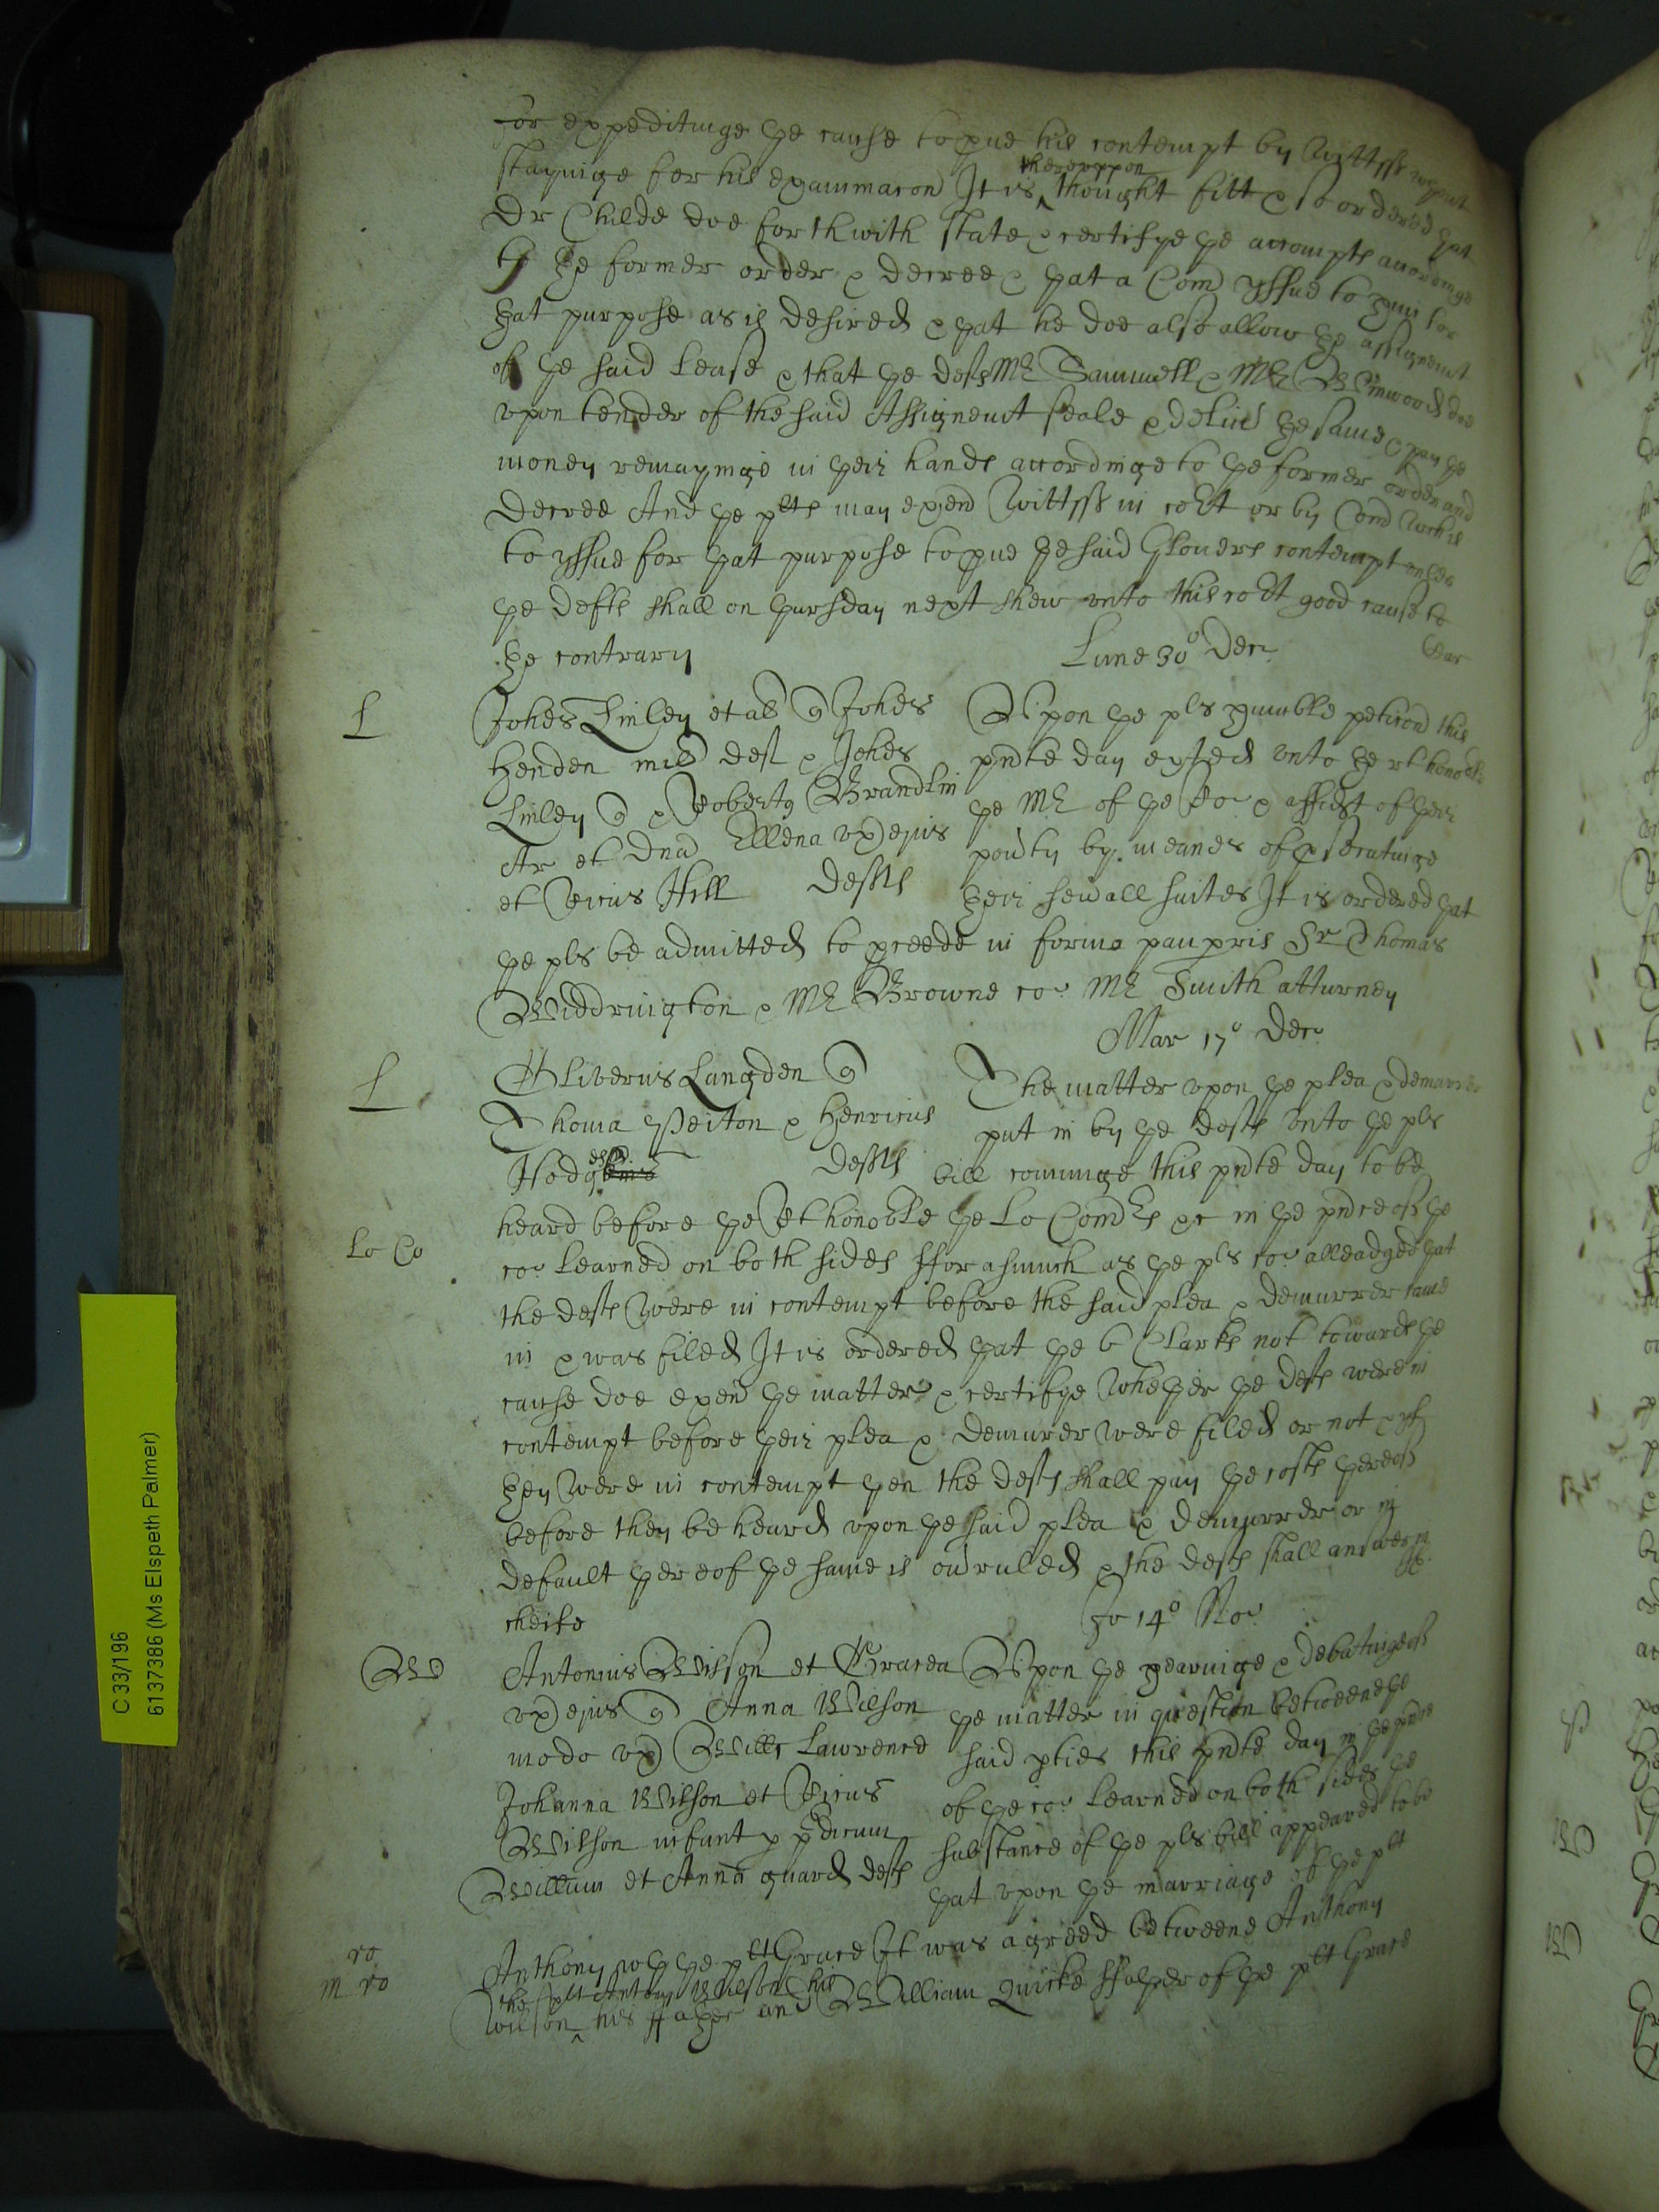 for expeditinge ye cause to pve his contempt by Wittnss wthout
stayinge for his exaiminacon It is thereuppon thought fitt & so ordered yat
Dr Childe doe forthwith state & certifye ye accompts accordinge
to ye former order & decree & yat a Com yssue to him for
yat purpose as is desired & yat he doe also allow ye assignemt
of ye said Lease & that ye defts Mr Samwell & Mr Winwood doe
vpon tender of the said Assignemt seale & delivr ye same & pay ye
money remayninge in yeir hands accordinge to ye former order and
Decree And ye plts may exen Wittnss in cort or by Com wch is
to yssue for yat purpose to pve ye said Glovers contempt vnles
ye defts shall on yursday next shew vnto this cort good cause to
ye contrary
Lune 30o Decr
Johes Linley et al q Johes
Henden mil deft & Johes
Linley q & Robertq Brandlin
Ar et Dna Ellena vx ejus
et Ricus Hill defts
L
Vpon ye pls humble peticon this
pnte day exted vnto ye rt honoble
ye Mr of ye Ro & affidt of yeir
povty by meanes of psecutinge
yeir sevall suites It is ordered yat
ye pls be admitted to pceede in forma paupris Sr Thomas
Widdrington & Mr Browne co Mr Smith atturney
Mar 17o Decr
L
Oliverus Langden q
Thoma Peiton & Henricus
Hodg defts
The matter vpon ye plea & demurrer
put in by ye defts vnto ye pls
bill comminge this pnte day to be
heard before ye Rt honoble ye Lo Comrs &c in ye pnce of ye
Lo Co
co Learned on both sides fforasmuch as ye pls co alleadged yat
the defts were in contempt before the said plea & demurrer came
in & was filed It is ordered yat ye 6 Clarks not towards ye
cause doe exen ye matter & certifye whether ye defts were in
contempt before yeir plea & demurer were filed or not & if
yey were in contempt yen the defts shall pay ye costs yereof
before they be heard vpon ye said plea & demurrer or in
default yereof ye same is ovruled & the defts shall answer in
cheife
Jo 14o No
W
Antonius Wilson et Gracea
vx ejus q Anna Wilson
modo vx Willi Lawrence
Johanna Wilson et Ricus
Wilson infant p pdicum
Willium et Anna guard defts
Vpon ye hearinge & debatinge of
ye matter in question betweene ye
said pties this pnte day in ye pnce
of ye co Learned on both sides ye
substance of ye pls bill appeared to be
yat vpon ye marriage of ye plt
Anthony wth ye plt Grace It was agreed betweene Anthony
ro
m ro
Wilson the plt Antony Wilson his ffather and William Quicke ffather of ye plt Grace
C 33/196
6137386 (Ms Elspeth Palmer)